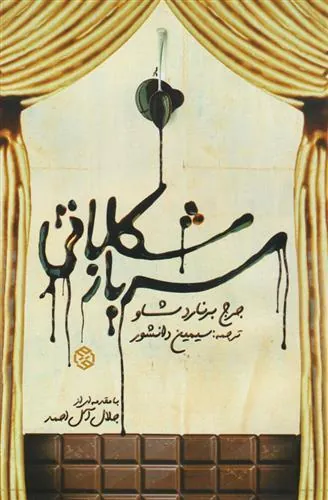 سرباز شکلاتی
جرج برنارد شاو
ترجمه: سیمین دانشور
با مقدمه‌ای از
جلال آل احمد